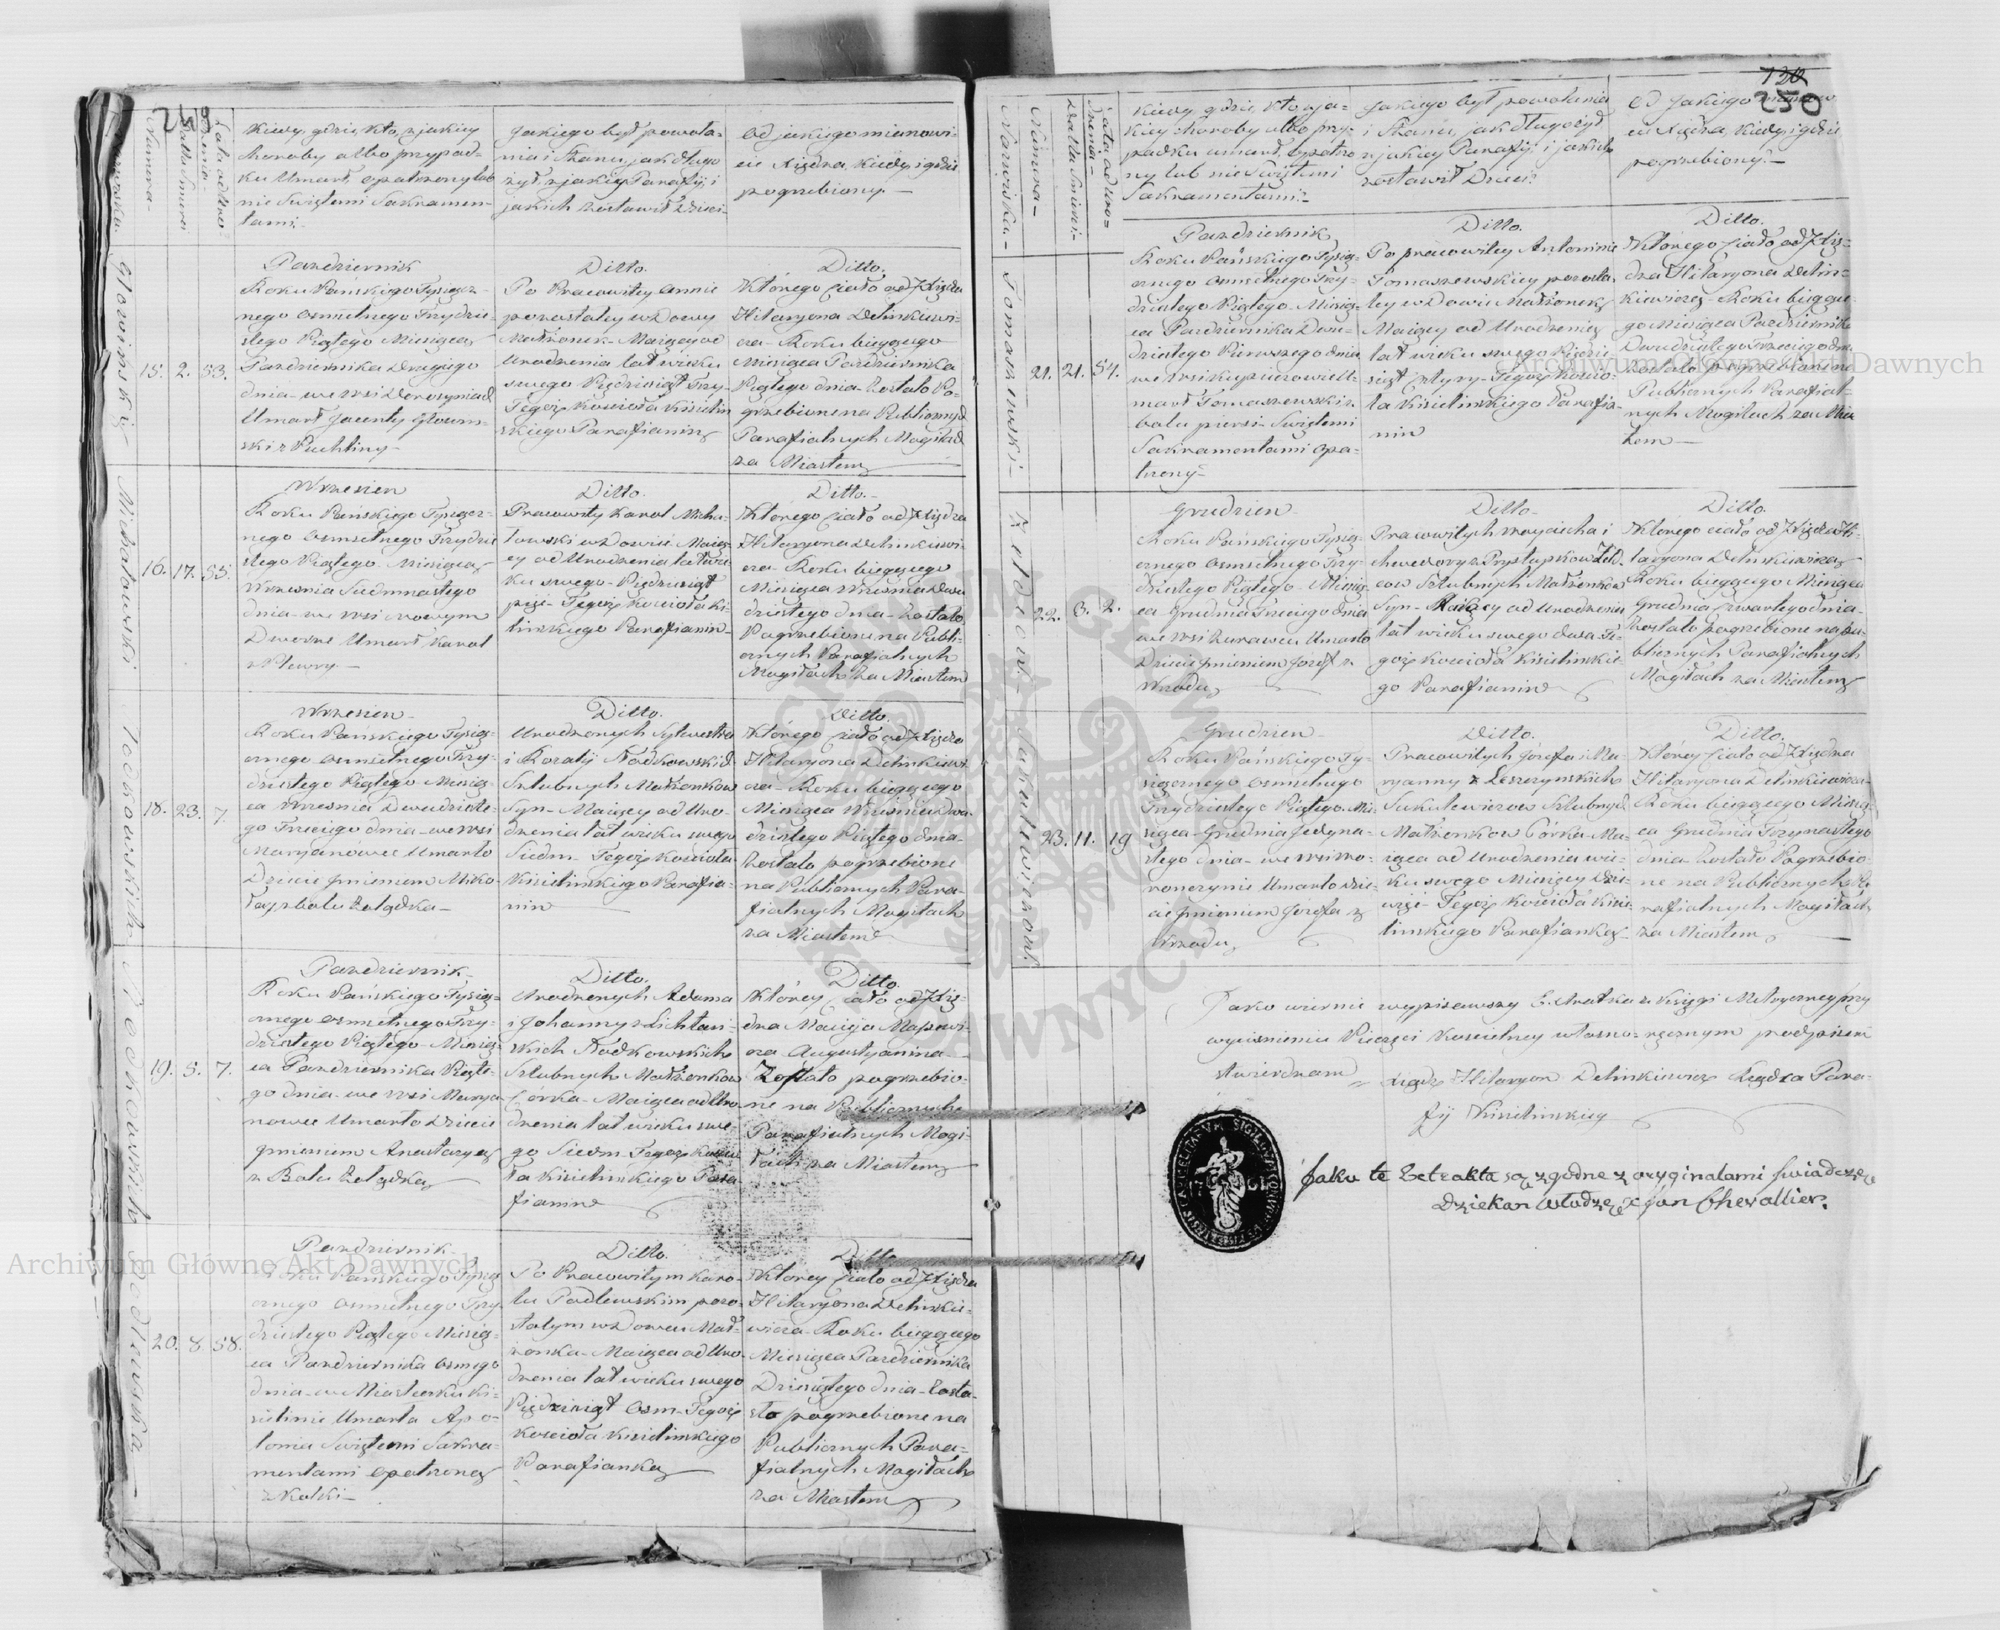 249
Nazwiska.
Numera.
Data Smierci
Lata od Uro-
dzenia.
Kiedy, gdzie, kto, z jakiey
choroby albo przypad-
ku Umarł, opatrzony lub
nie Swiętemi Sakramen-
tami.
Jakiego był powoła-
nia i Stanu, jak długo
żył, z jakiey Parafij, i
jakich zostawił dzieci.
Od jakiego mianowi-
cie Xiędza, kiedy i gdzie
pogrzebiony.
Głowinski
15.
2.
53.
Pazdziernik
Roku Pańskiego Tysiącz-
nego Osmsetnego Trzydzie-
stego Piątego Miesiąca
Pazdziernika Drugiego
dnia we wsi Woroszynie
Umarł Jacenty Głowin-
ski z Puchliny
Ditto.
Po Pracowitey Annie
pozostałey wdowy
Małżonek Maiący od
Urodzenia lat wieku
swego Pięćdziesiąt Trzy
Tegoż Kościoła Kisielin-
skiego Parafianin
Ditto.
Którego ciało od Xiędza
Hilaryona Delinkiewi-
cza Roku bieżącego
Miesiąca Pazdziernika
Piątego dnia Zostało Po-
grzebione na Publicznych
Parafialnych Mogiłach
za Miastem
Michałowski
16.
17.
55.
Wrzesien
Roku Pańskiego Tysiącz-
nego Osmsetnego Trzydzie-
stego Piątego Miesiąca
Września Siedmnastego
dnia we wsi nowym
Dworze Umarł Karol
z Plewry
Ditto.
Pracowity Karol Micha-
łowski wdowiec Maiąc-
y od Urodzenia lat wie-
ku swego Pięćdziesiąt
pięć Tegoż Kościoła Ki-
lińskiego Parafianin
Ditto.
Którego ciało od Xiędza
Hilaryona Delinkiewi-
cza Roku bieżącego
Miesiąca Września Dwu-
dziestego dnia Zostało
Pogrzebione na Publi-
cznych Parafialnych
Mogiłach za Miastem
18.
23.
7.
Wrzesien
Roku Pańskiego Tysiąc-
znego Osmsetnego Trzy-
dziestego Piątego Miesią-
ca Września Dwudzieste-
go Trzeciego dnia we wsi
Maryanówce Umarło
Dziecie Imieniem Miko-
łay z bolu Żołądka
Ditto.
Urodzonych Sylwestra
i Rozalij Kodkowskich
Szlubnych Małżonków
Syn Maiący od Uro-
dzenia lat wieku swego
Siedm Tegoż Kościoła
Kisielinskiego Parafia-
nin
Ditto.
Którego ciało od Xiędza
Hilaryona Delinkiewi-
cza Roku bieżącego
Miesiąca Września Dwu-
dziestego Piątego dnia
Zostało pogrzebione
na Publicznych Para-
fialnych Mogiłach
za Miastem
19.
5.
7.
Pazdziernik
Roku Pańskiego Tysiąc-
znego Osmsetnego Trzy-
dziestego Piątego Miesią-
ca Pazdziernika Piąte-
go dnia we wsi Marya-
nowce Umarło Dziecie
Imieniem Anastazya
z Bolu Żołądka
Ditto.
Urodzonych Adama
i Johanny z Lichtań-
skich Kodkowskich
Szlubnych Małżonków
Corka Maiąca od Uro-
dzenia lat wieku swe-
go Siedm Tegoż Kościo-
ła Kisielinskiego Para-
fianin
Ditto.
Którey ciało od Xię-
dza Macieja
Augustyanina
Zostało pogrzebio-
ne na Publicznych
Parafialnych Mogi-
łach za Miastem
Podlewska
20.
8.
58.
Pazdziernik
Roku Pańskiego Tysiąc-
znego Osmsetnego Trzy-
dziestego Piątego Miesią-
ca Pazdziernika Osmego
dnia w Miasteczku Ki-
sielinie Umarła Apo-
lonia Swiętemi Sakra-
mentami opatrzona
z Kolki
Ditto.
Po Pracowitym Karo-
lu Podlewskim pozo-
stałym wdowcu Mał-
żonka Maiąca od Uro-
dzenia lat wieku swego
Pięćdziesiąt Osm Tegoż
Kościoła Kisielinskiego
Parafianka
Ditto.
Którey ciało od Xiędza
Hilaryona Delinkie-
wicza Roku bieżącego
Miesiąca Pazdziernika
Dziesiątego dnia Zosta-
ło pogrzebione na
Publicznych Para-
fialnych Mogiłach
za Miastem
120
250
Nazwiska
Numera
Data Smierci
Lata od Uro-
dzenia
Kiedy, gdzie, kto, z ja-
kiey choroby albo przy-
padku umarł, opatrzo-
ny lub nie Swiętemi
Sakramentami.
Jakiego był powołania
i Stanu, jak długo żył
z jakiey Parafij, i jakich
zostawił Dzieci.
Od Jakiego mianow-
cie Xiędza, kiedy i gdzie
pogrzebiony.
Tomaszewski
21.
21.
54.
Pazdziernik
Roku Pańskiego Tysiąc-
znego Osmsetnego Trzy-
dziestego Piątego Miesią-
ca Pazdziernika Dwu-
dziestego Pierwszego dnia
we wsi U-
marł Tomaszewski z
bolu piersi Swiętemi
Sakramentami Opa-
trzony
Ditto.
Po pracowitey Antoninie
Tomaszewskiey pozosta-
łey wdowie Małżonek
Maiący od Urodzenia
lat wieku swego Pięćdzie-
siąt Cztyry Tegoż Kościo-
ła Kisielinskiego Parafia-
nin
Ditto.
Którego ciało od Xię-
dza Hilaryona Delin-
kiewicza Roku bieżące-
go Miesiąca Pazdziernika
Dwudziestego Trzeciego dnia
Zostało pogrzebione na
Publicznych Parafial-
nych Mogiłach za Mia-
stem
22.
3.
2.
Grudzien
Roku Pańskiego Tysiąc-
znego Osmsetnego Trzy-
dziestego Piątego Miesią-
ca Grudnia Trzeciego dnia
we wsi Zurawcu Umarło
Dziecie Imieniem Józef z
Wrzodu
Ditto.
Pracowitych Woyciecha i
Szlubnych Małżonków
Syn Maiący od Urodzenia
lat wieku swego dwa Te-
goż Kościoła Kisielinskie-
go Parafianin
Ditto.
Którego ciało od Xiędza Hi-
laryona Delinkiewicza
Roku bieżącego Miesiąca
Grudnia Czwartego dnia
Zostało pogrzebione na Pu-
blicznych Parafialnych
Mogiłach za Miastem
Sakulewiczow
23.
11.
19
Grudzien
Roku Pańskiego Ty-
siącznego Osmsetnego
Trzydziestego Piątego Mie-
siąca Grudnia Jedyna-
stego dnia we wsi Wo-
ronczynie Umarło dzie-
cie Imieniem Józefa z
Wrzodu
Ditto.
Pracowitych Józefa i Ma-
ryanny z Leszczynskich
Sakulewiczow Szlubnych
Małżonkow Córka Ma-
iąca od Urodzenia wie-
ku swego Miesięcy dzie-
więć Tegoż Kościoła Kisie-
linskiego Parafianka
Ditto.
Którey ciało od Xiędza
Hilaryona Delinkiewicza
Roku bieżącego Miesią-
ca Grudnia Trzynastego
dnia Zostało Pogrzebio-
ne na Publicznych Pa-
rafialnych Mogiłach
za Miastem
Jako wiernie wypisawszy Extrakta z Xięgi Metryczney przy
wyciśnieniu Pieczęci Kościelney własno-ręcznym podpisem
stwierdzam Xiądz Hilaryon Delinkiewicz Rządca Para-
fij Kisielinskiey
Jako te Extrakta są zgodne z oryginałami świadczę
Dziekan Włodz. X Jan Chevallier.
Archiwum Główne Akt Dawnych
Archiwum Główne Akt Dawnych